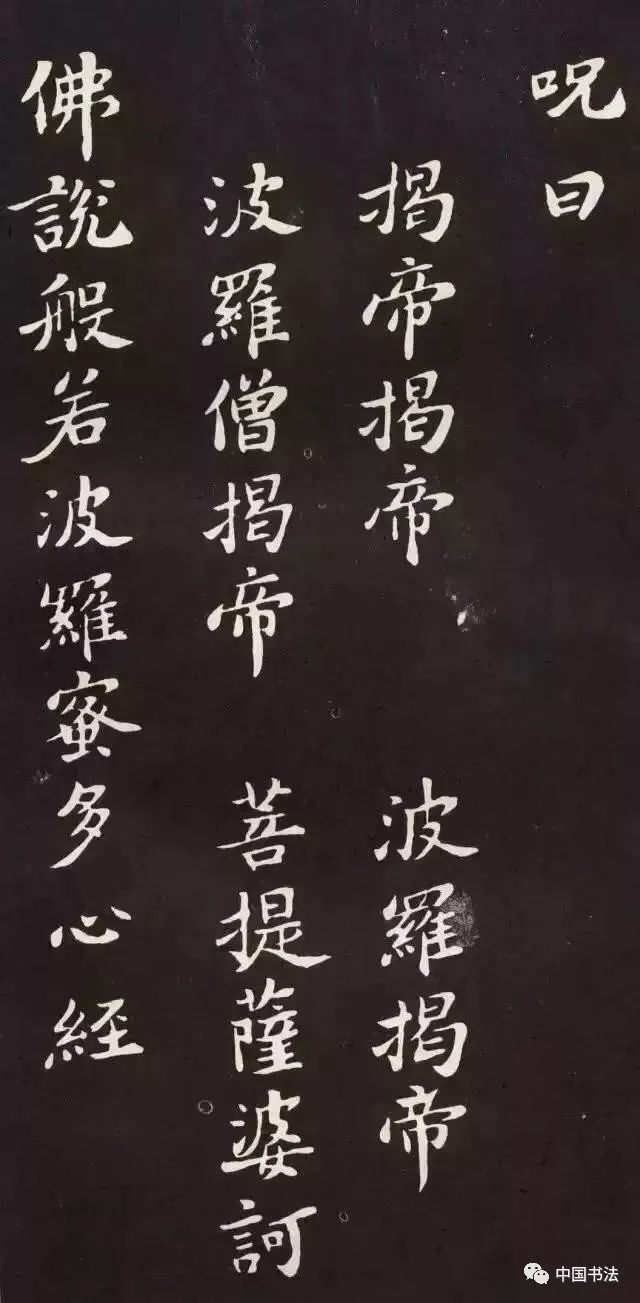 呪曰
揭帝揭帝 波羅揭帝
波羅僧揭帝 菩提薩婆訶
佛說般若波羅蜜多心經
中国书法